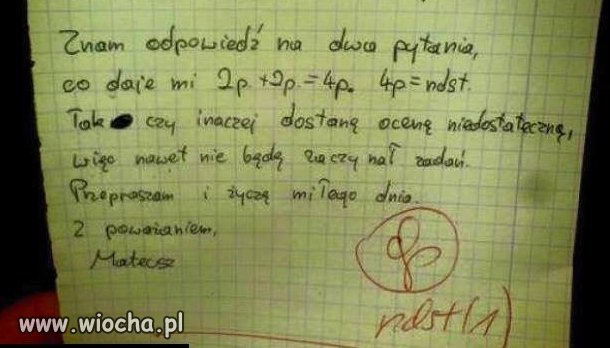 Znam odpowiedź na dwa pytania,
co daje mi 2p.+2p.=4p. 4p=ndst.
Tak czy inaczej dostanę ocenę niedostateczną,
więc nawet nie będę zaczynał zadań.
Przepraszam i życzę miłego dnia.
Z poważaniem,
Mateusz
ndst(1)
www.wiocha.pl